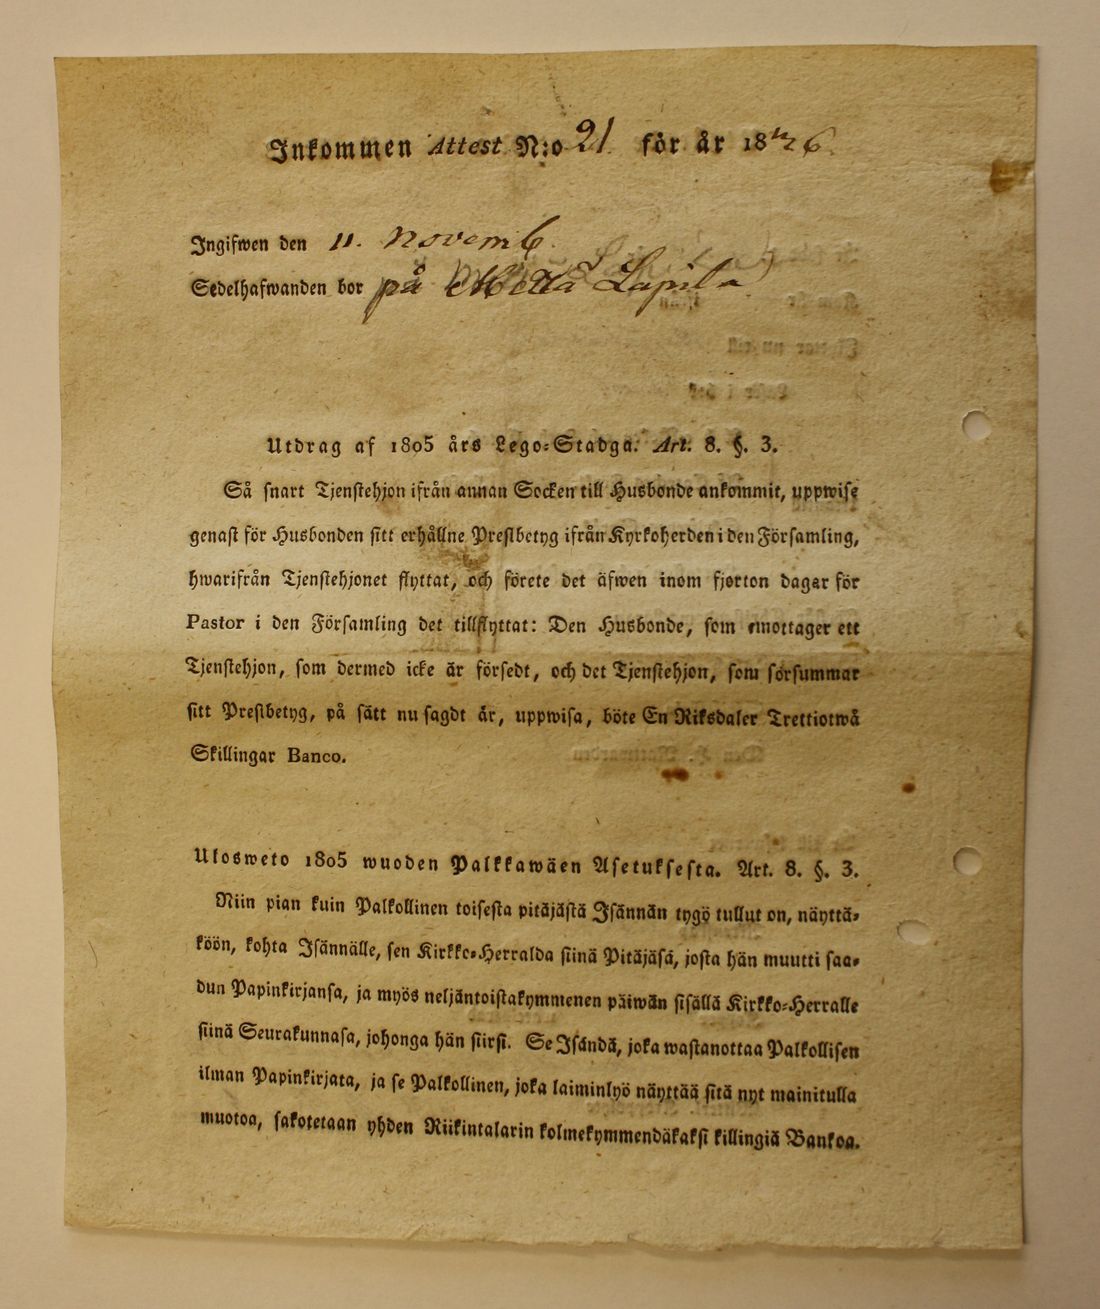 Inkommen Attest N:o 21 för år 1826.
Ingifwen den 11. Novemb.
Sedelhafwanden bor på Lapila
Utdrag af 1805 års Lego-Stadga. Art. 8. §. 3.
Så snart Tjenstehjon ifrån annan Socken till Husbonde ankommit, uppwise
genast för Husbonden sitt erhållne Prestbetyg ifrån Kyrkoherden i den Församling,
hwarifrån Tjenstehjonet flyttat, och förete det äfwen inom fjorton dagar för
Pastor i den Församling det tillflyttat: Den Husbonde, som emottager ett
Tjenstehjon, som dermed icke är försedt, och det Tjenstehjon, som försummar
sitt Prestbetyg, på sätt nu sagdt är, uppwisa, böte En Riksdaler Trettiotwå
Skillingar Banco.
Ulosweto 1805 wuoden Palkkawäen Asetuksesta. Art. 8. §. 3.
Niin pian kuin Palkollinen toisesta pitäjästä Isännän tygö tullut on, näyttä-
köön, kohta Isännälle, sen Kirkko-Herralda siinä Pitäjäsä, josta hän muutti saa-
dun Papinkirjansa, ja myös neljäntoistakymmenen päiwän sisällä Kirkko-Herralle
siinä Seurakunnasa, johonga hän siirsi. Se Isändä, joka wastanottaa Palkollisen
ilman Papinkirjata, ja se Palkollinen, joka laiminlyö näyttää sitä nyt mainitulla
muotoa, sakotetaan yhden Riikintalarin kolmekymmendäkaksi killingiä Bankoa.